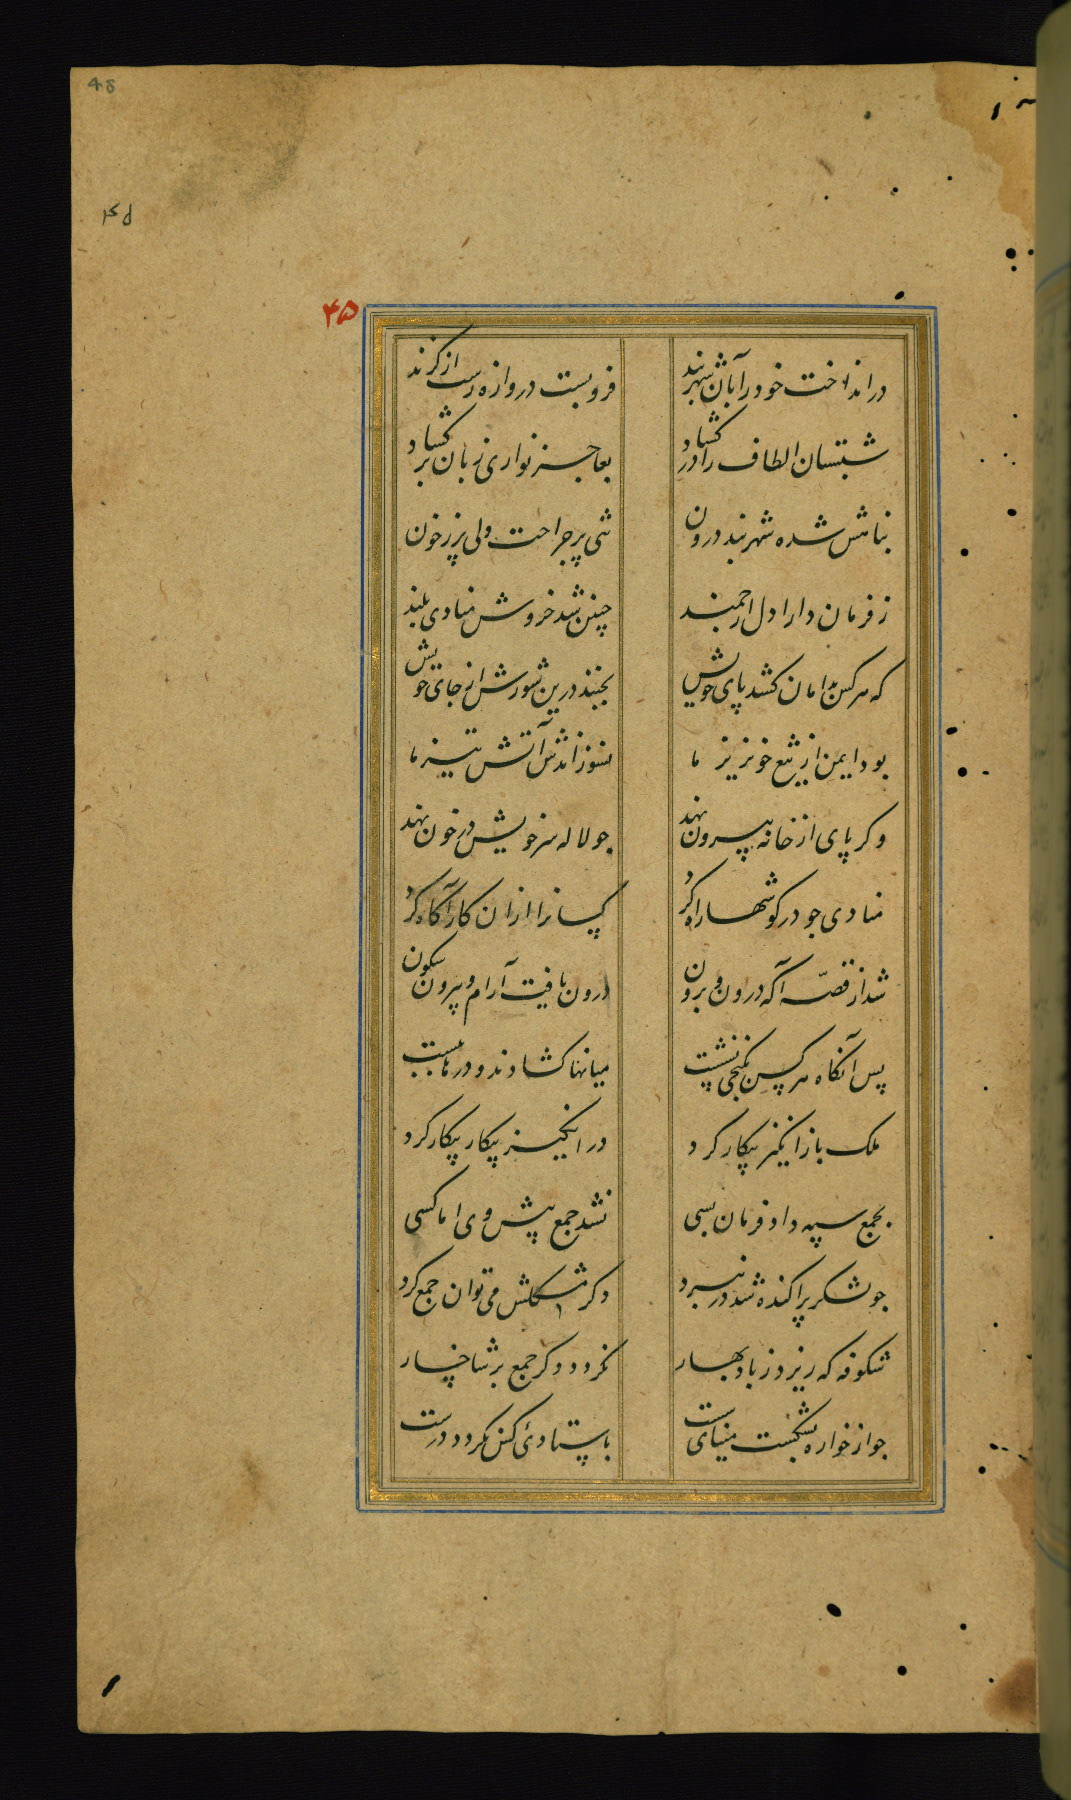 48
۴۵
۴۵
در انداخت خود را بآن شهربند
فروبست دروازه رست از کزند
شبستان الطاف را در کشاد
بعاجز نوازی زبان بر کشاد
بناهش شده شهربند درون
تنی پر جراحت ولی پر ز خون
ز فرمان دارا دل ارجمند
چنین شد خروش منادی بلند
که هر کس بدامان کشد پای خویش
نجنبد درین شورش از جای خویش
بود ایمن از تیغ خونریز ما
نسوزاندش آتش تیز ما
وکر پای از خانه بیرون نهد
جو لاله سر خویش در خون نهد
منادی جو در کوشها راه کرد
کسانرا ازان کار آکاه کرد
شد از قصه آکه درون و برون
درون یافت آرام و بیرون سکون
پس آنکاه هر کس بکنجی نشست
میانها کشادند و درها ببست
ملک باز انکیز پیکار کرد
در انکیز پیکار پیکار کرد
بجمع سپه داد فرمان بسی
نشد جمع پیش وی اما کسی
جو لشکر پراکنده شد در نبرد
دکر مشکلش می توان جمع کرد
شکوفه که ریزد ز باد بهار
نکردد دکر جمع بر شاخسار
جو از خواره بشکست مینای
باستادی کس نکردد درست